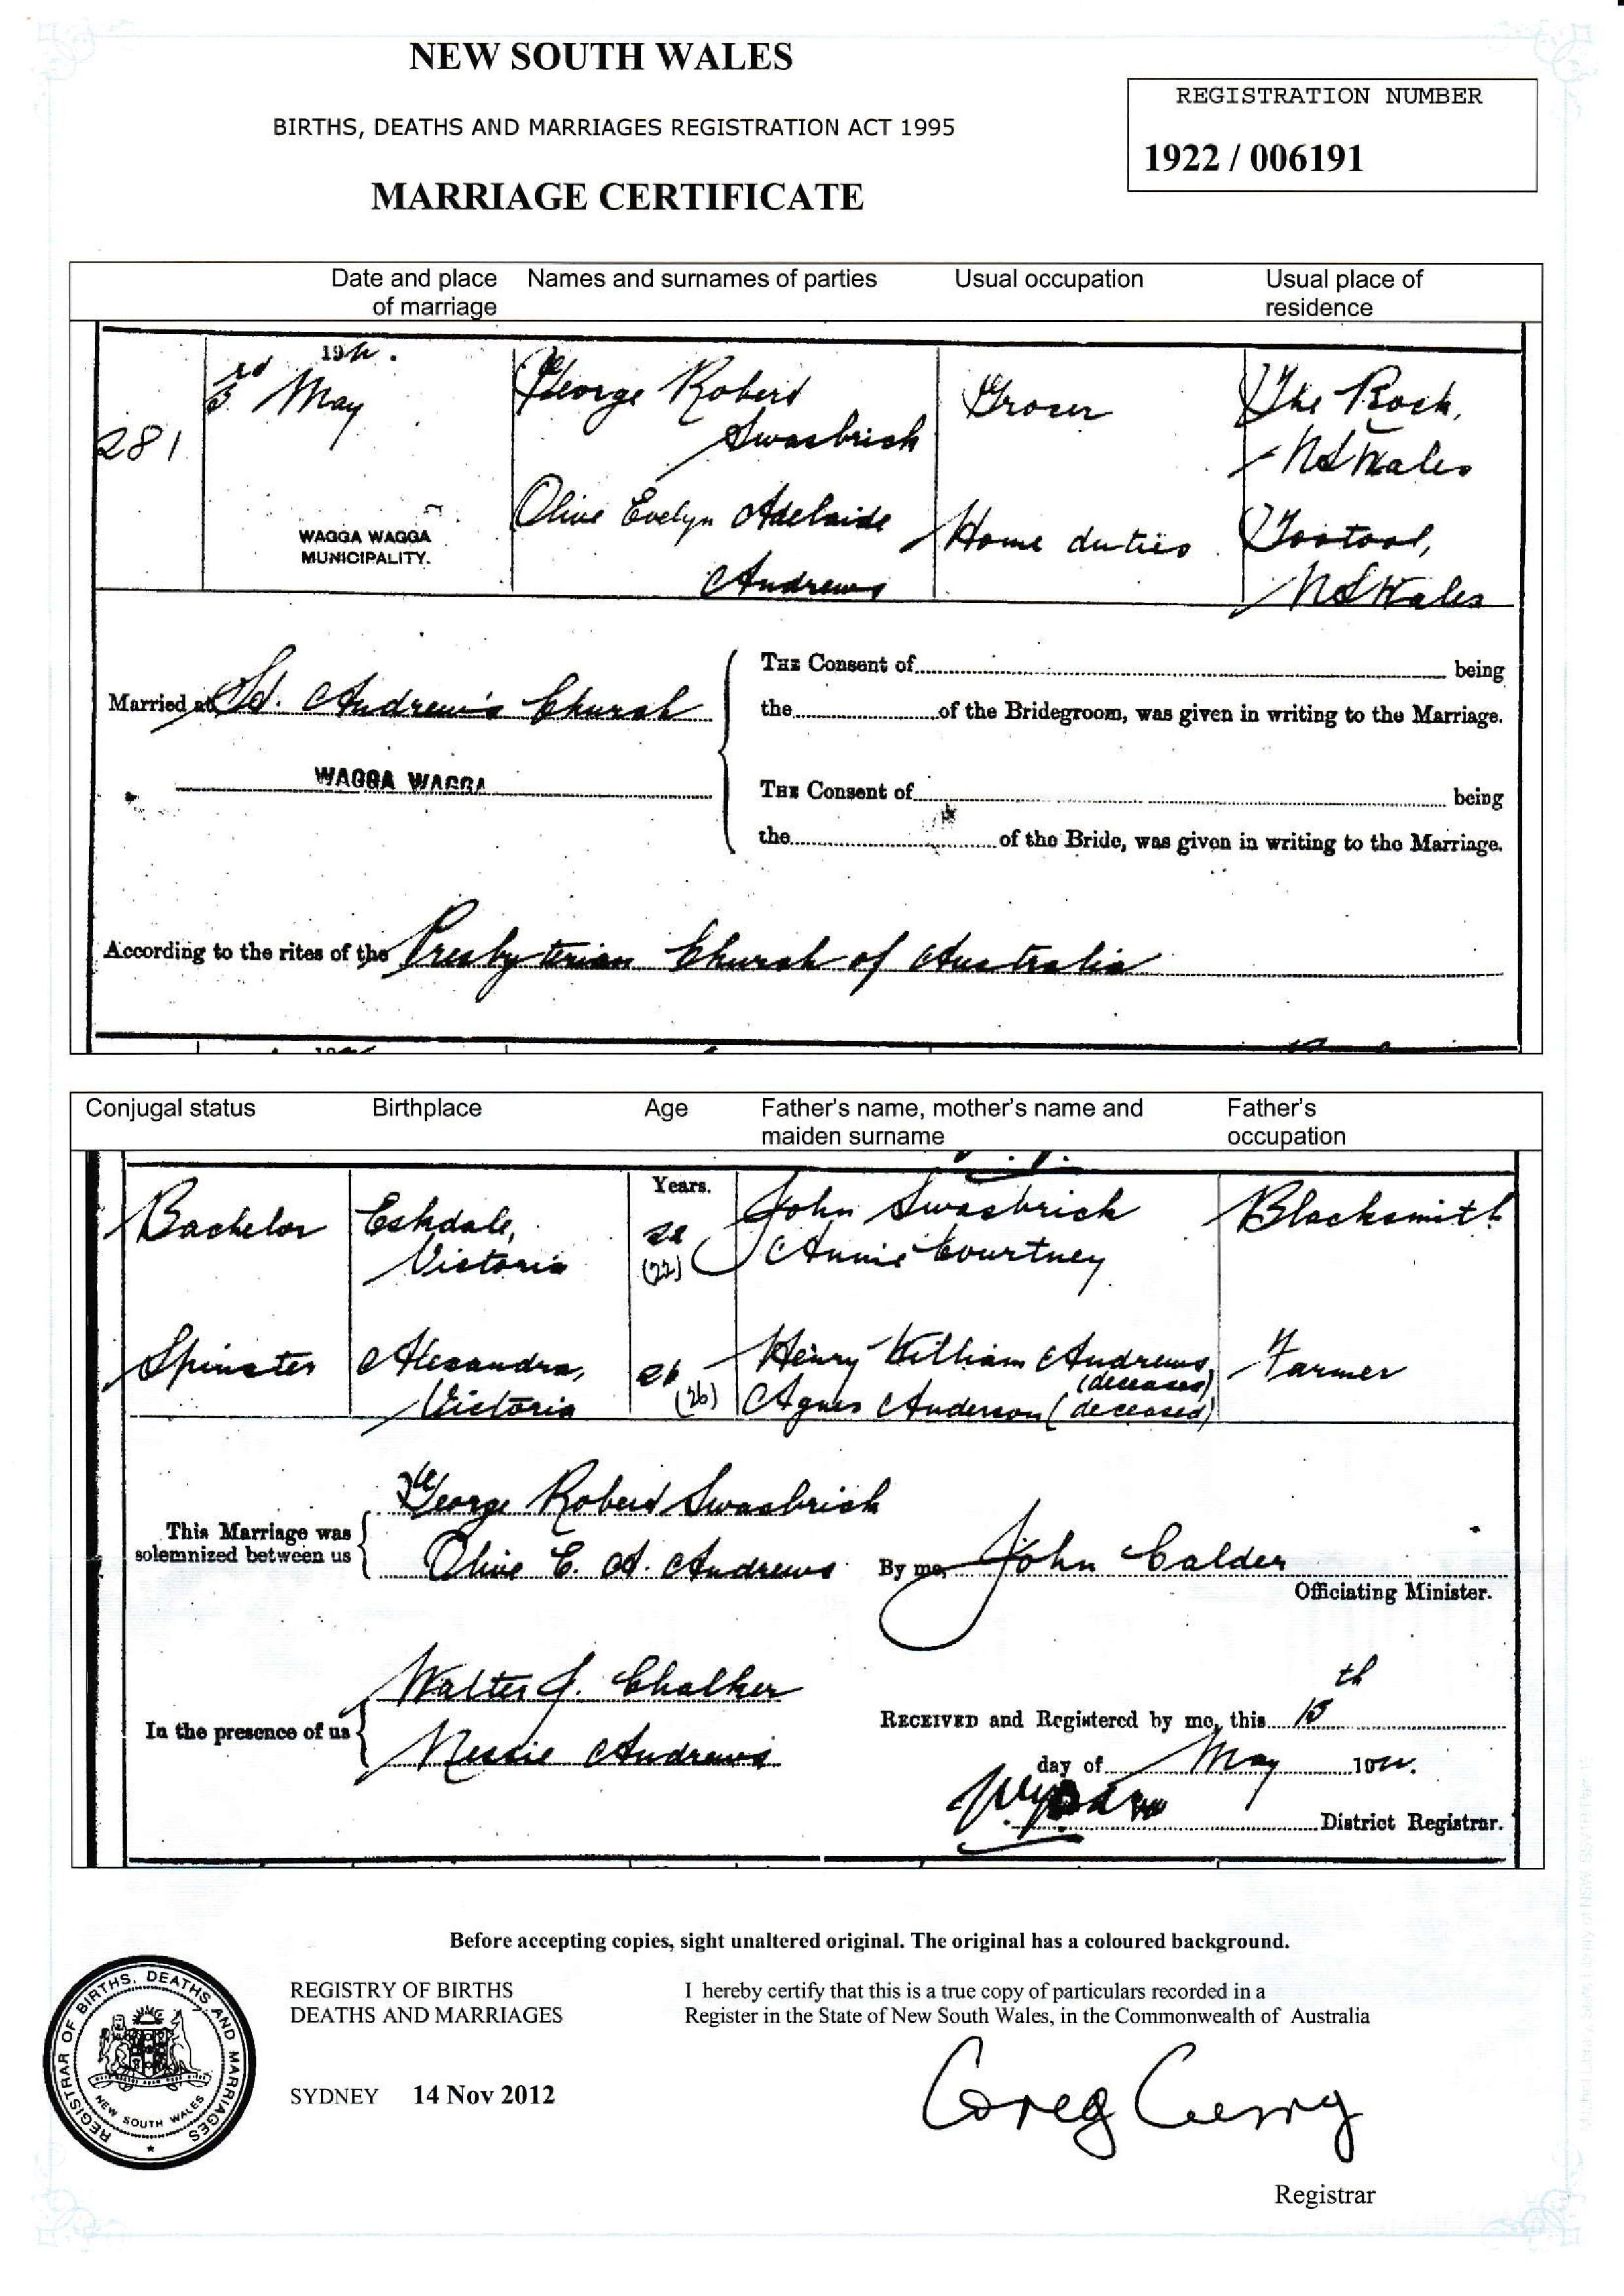 NEW SOUTH WALES
BIRTHS, DEATHS AND MARRIAGES REGISTRATION ACT 1995
MARRIAGE CERTIFICATE
REGISTRATION NUMBER
1922 / 006191
Date and place of marriage
Names and surnames of parties
Usual occupation
Usual place of residence
281
3rd May
WAGGA WAGGA
MUNICIPALITY.
George Robert
Swasbrick
Grocer
The Rock,
NSWales
Olive Evelyn Adelaide
Andrews
Home duties
Tootool,
NSWales
Married at St. Andrew's Church
WAGGA WAGGA
THE Consent of being
the of the Bridegroom, was given in writing to the Marriage.
THE Consent of being
the of the Bride, was given in writing to the Marriage.
According to the rites of the Presbyterian Church of Australia
Conjugal status
Birthplace
Age
Father's name, mother's name and maiden surname
Father's occupation
Years.
Bachelor
Eskdale,
Victoria
22
(22)
John Swasbrick
Annie Courtney
Blacksmith
Spinster
Alexandra,
Victoria
26
(26)
Henry William Andrews,
(deceased)
Agnes Anderson (deceased)
Farmer
This Marriage was solemnized between us
George Robert Swasbrick
Olive E. A. Andrews
By me, John Calder
Officiating Minister.
In the presence of us
Walter J. Chalker
Nessie Andrews
RECEIVED and Registered by me, this 15th
day of May 1922.
District Registrar.
Before accepting copies, sight unaltered original. The original has a coloured background.
REGISTRAR OF BIRTHS, DEATHS AND MARRIAGES
NEW SOUTH WALES
REGISTRY OF BIRTHS
DEATHS AND MARRIAGES
SYDNEY 14 Nov 2012
I hereby certify that this is a true copy of particulars recorded in a
Register in the State of New South Wales, in the Commonwealth of Australia
Greg Curry
Registrar